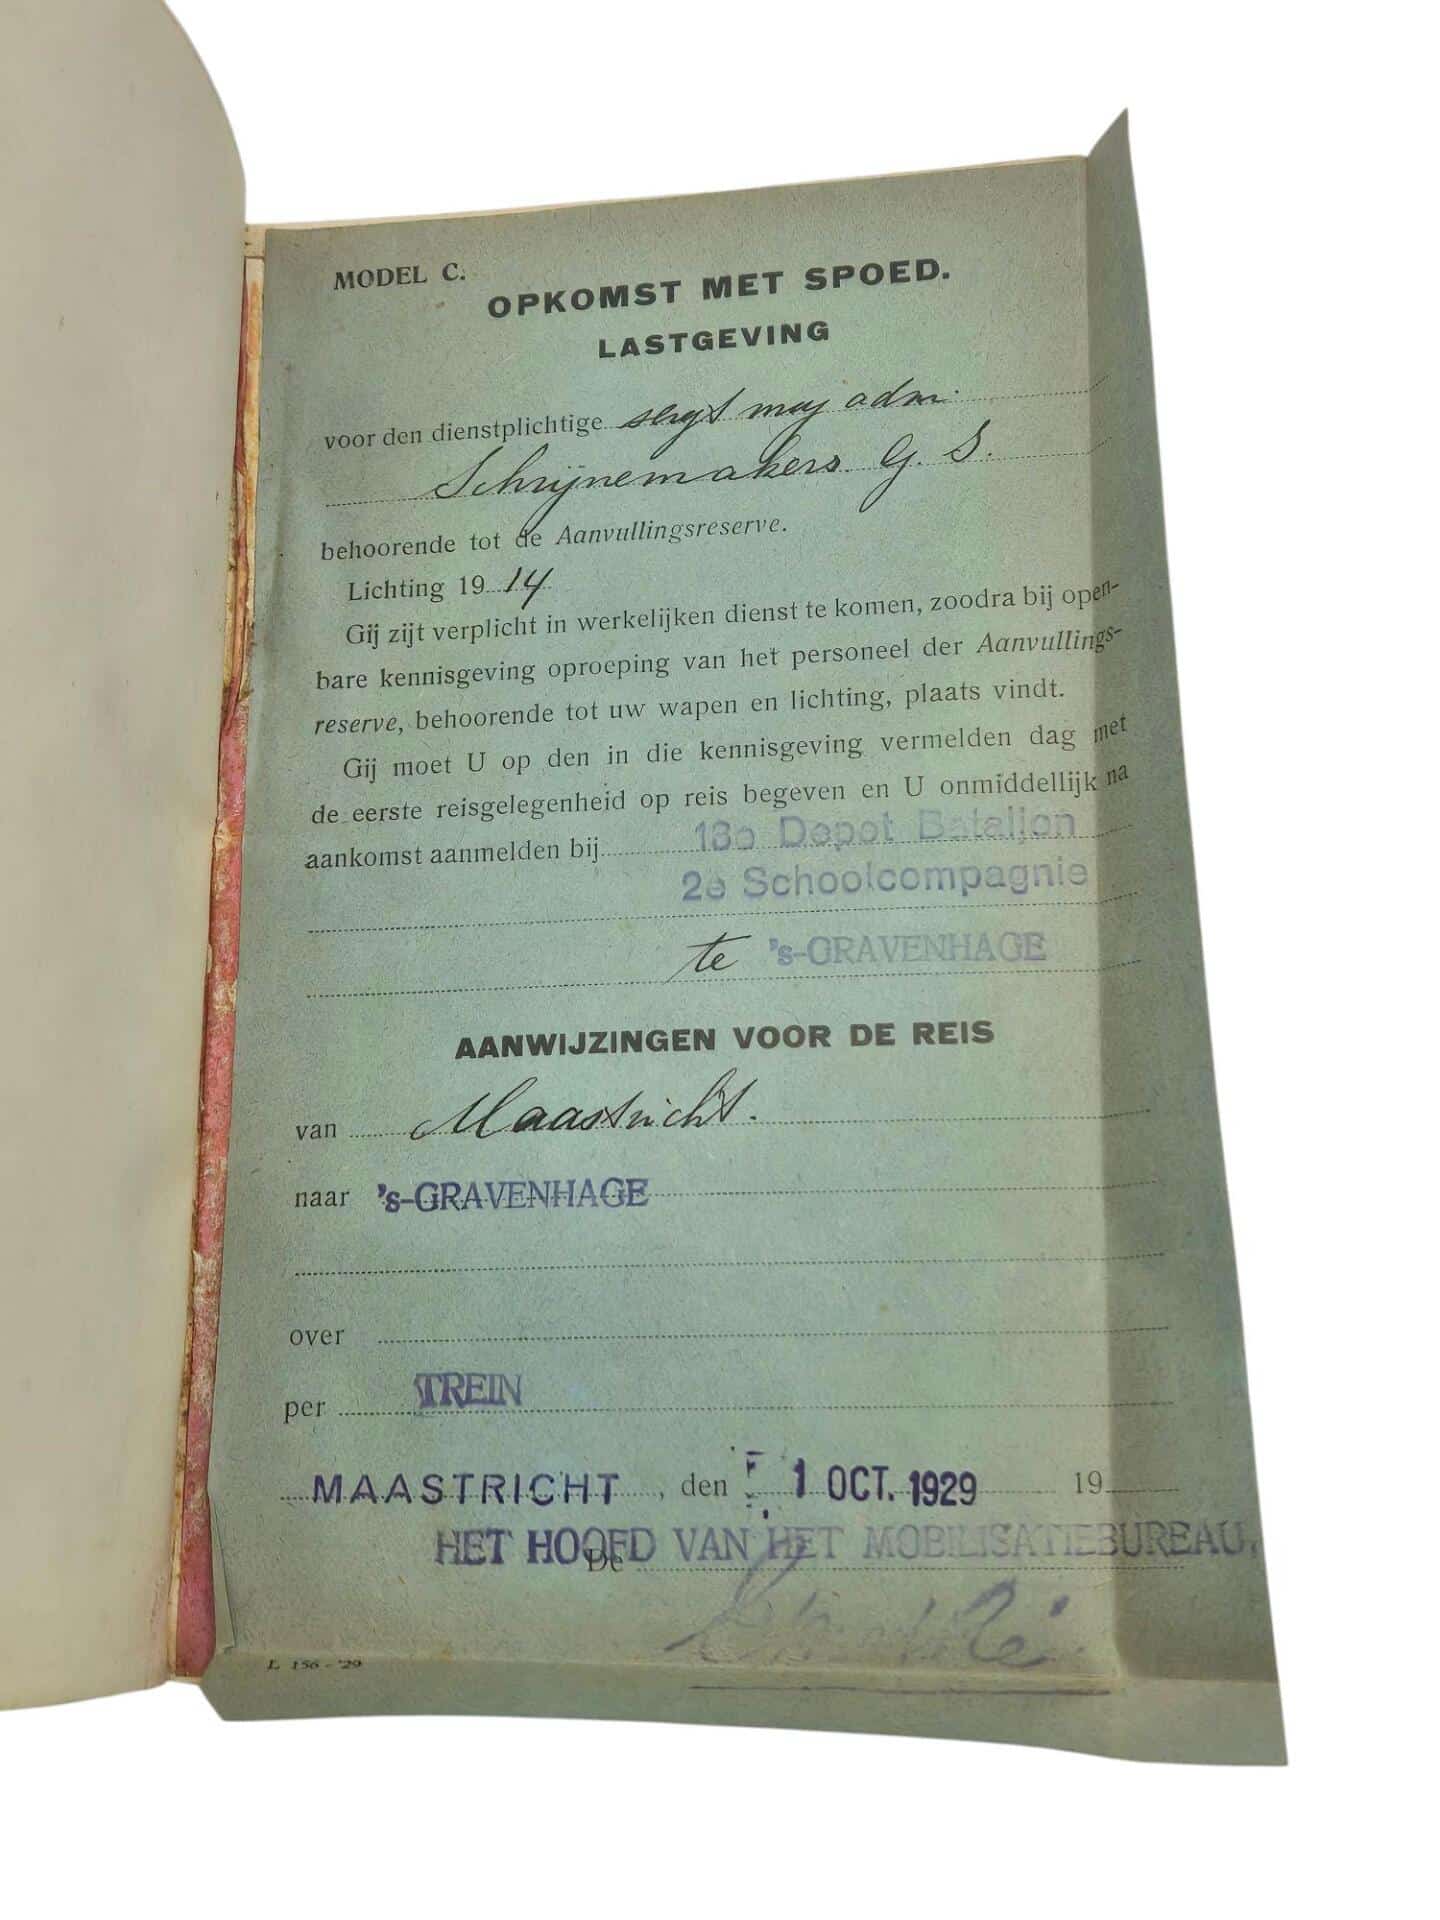 MODEL C.
OPKOMST MET SPOED.
LASTGEVING
voor den dienstplichtige sergt maj adm.
Schrijnemakers. G. S.
behoorende tot de Aanvullingsreserve.
Lichting 19 14
Gij zijt verplicht in werkelijken dienst te komen, zoodra bij open-
bare kennisgeving oproeping van het personeel der Aanvullings-
reserve, behoorende tot uw wapen en lichting, plaats vindt.
Gij moet U op den in die kennisgeving vermelden dag met
de eerste reisgelegenheid op reis begeven en U onmiddellijk na
aankomst aanmelden bij Depot Bataljon
2e Schoolcompagnie
te 's-GRAVENHAGE
AANWIJZINGEN VOOR DE REIS
van Maastricht.
naar 's-GRAVENHAGE
over
per TREIN
MAASTRICHT, den 1 OCT. 1929 19
HET HOOFD VAN HET MOBILISATIEBUREAU,
De
L 156 - '29